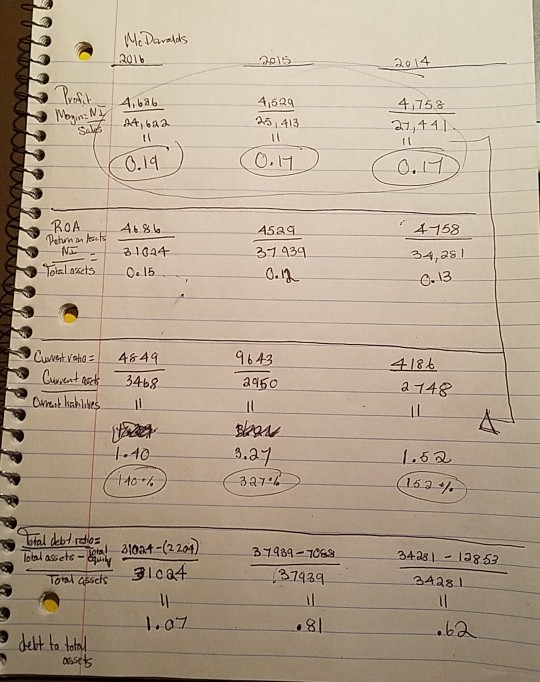 McDonalds
2016 2015 2014
Profit Margin = NI / Sales
4,686 4,529 4,758
24,622 25,413 27,441
|| || ||
0.19 0.17 0.17
ROA
Return on Assets
NI =
Total assets
4686 4529 4758
31024 37939 34,281
0.15 0.12 0.13
Current ratio =
Current assets
Current liabilities
4849 9643 4186
3468 2950 2748
|| || ||
1.40 3.27 1.52
140% 327% 152%
Total debt ratio =
Total assets - Total Equity
Total assets
31024-(2204) 37939-7088 34281-12853
31024 37939 34281
|| || ||
1.07 .81 .62
debt to total
assets